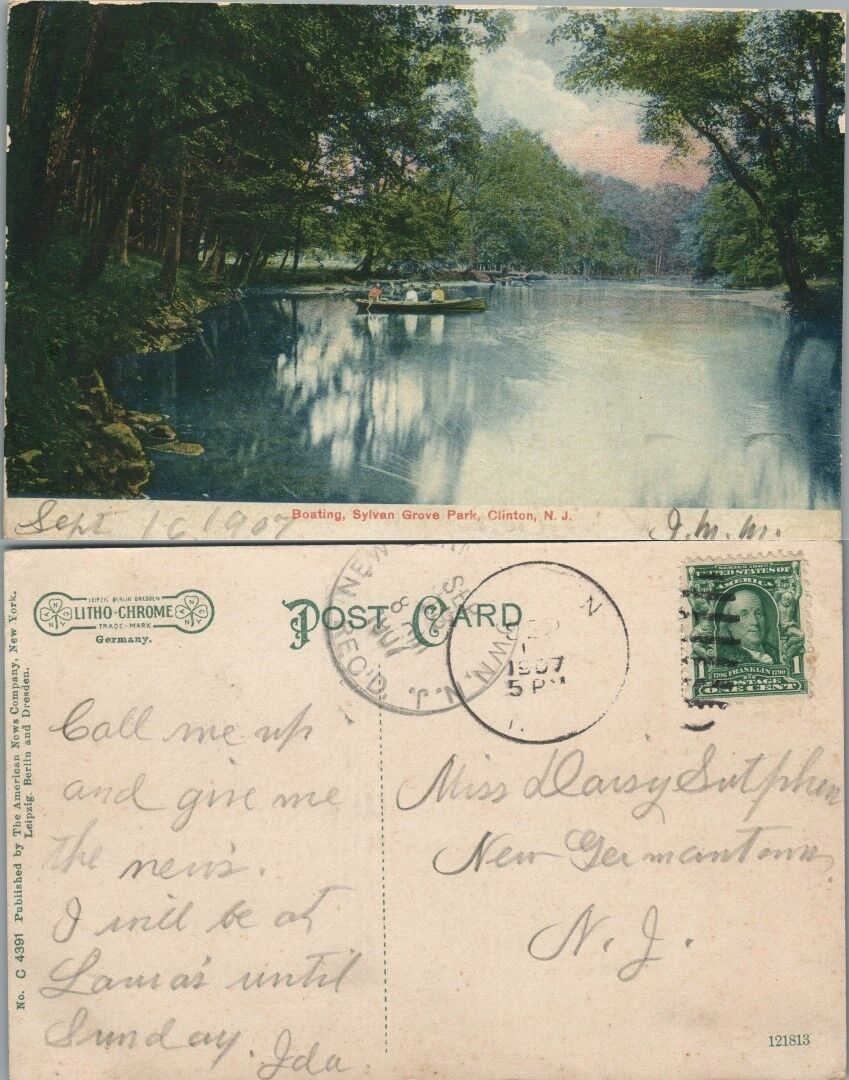 Boating, Sylvan Grove Park, Clinton, N. J.
Sept 16 1907
I. M. M.
No. C 4391 Published by The American News Company, New York.
Leipzig, Berlin and Dresden.
LEIPZIG BERLIN DRESDEN
LITHO-CHROME
TRADE-MARK
Germany.
POST CARD
REC'D.
N. J.
SEP
8 AM
1907
N
1907
5 PM
SERIES 1902
UNITED STATES OF
AMERICA
1706 FRANKLIN 1790
1 1
POSTAGE
ONE CENT
Call me up
and give me
the news.
I will be at
Laura's until
Sunday.
Ida
Miss Daisy Sutphen
New Germantown,
N. J.
121813